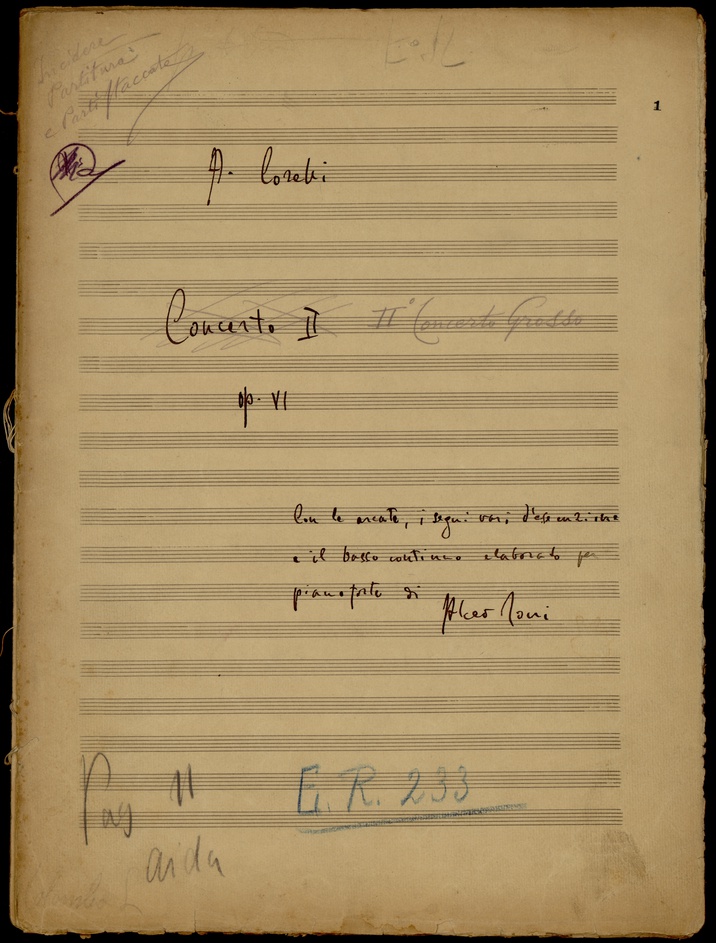 Incidere
Partitura
e Parti Staccate
1
A. Corelli
Concerto II
II° Concerto Grosso
op. VI
Con le arcate, i segni vari d'esecuzione
e il basso continuo elaborato per
pianoforte di
Alceo Toni
Pag 11
aida
E.R. 233